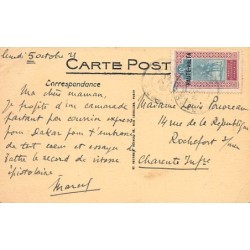 lundi 5 octobre
CARTE POST
Correspondance
Ma chère maman,
Je profite d'un camarade
partant par courrier express
pour Dakar pour t'embrasser
de tout cœur et essayer de
battre le record de vitesse
épistolaire
Marcel
Madame Louis
14 rue de la République
Rochefort s/mer
Charente Infre